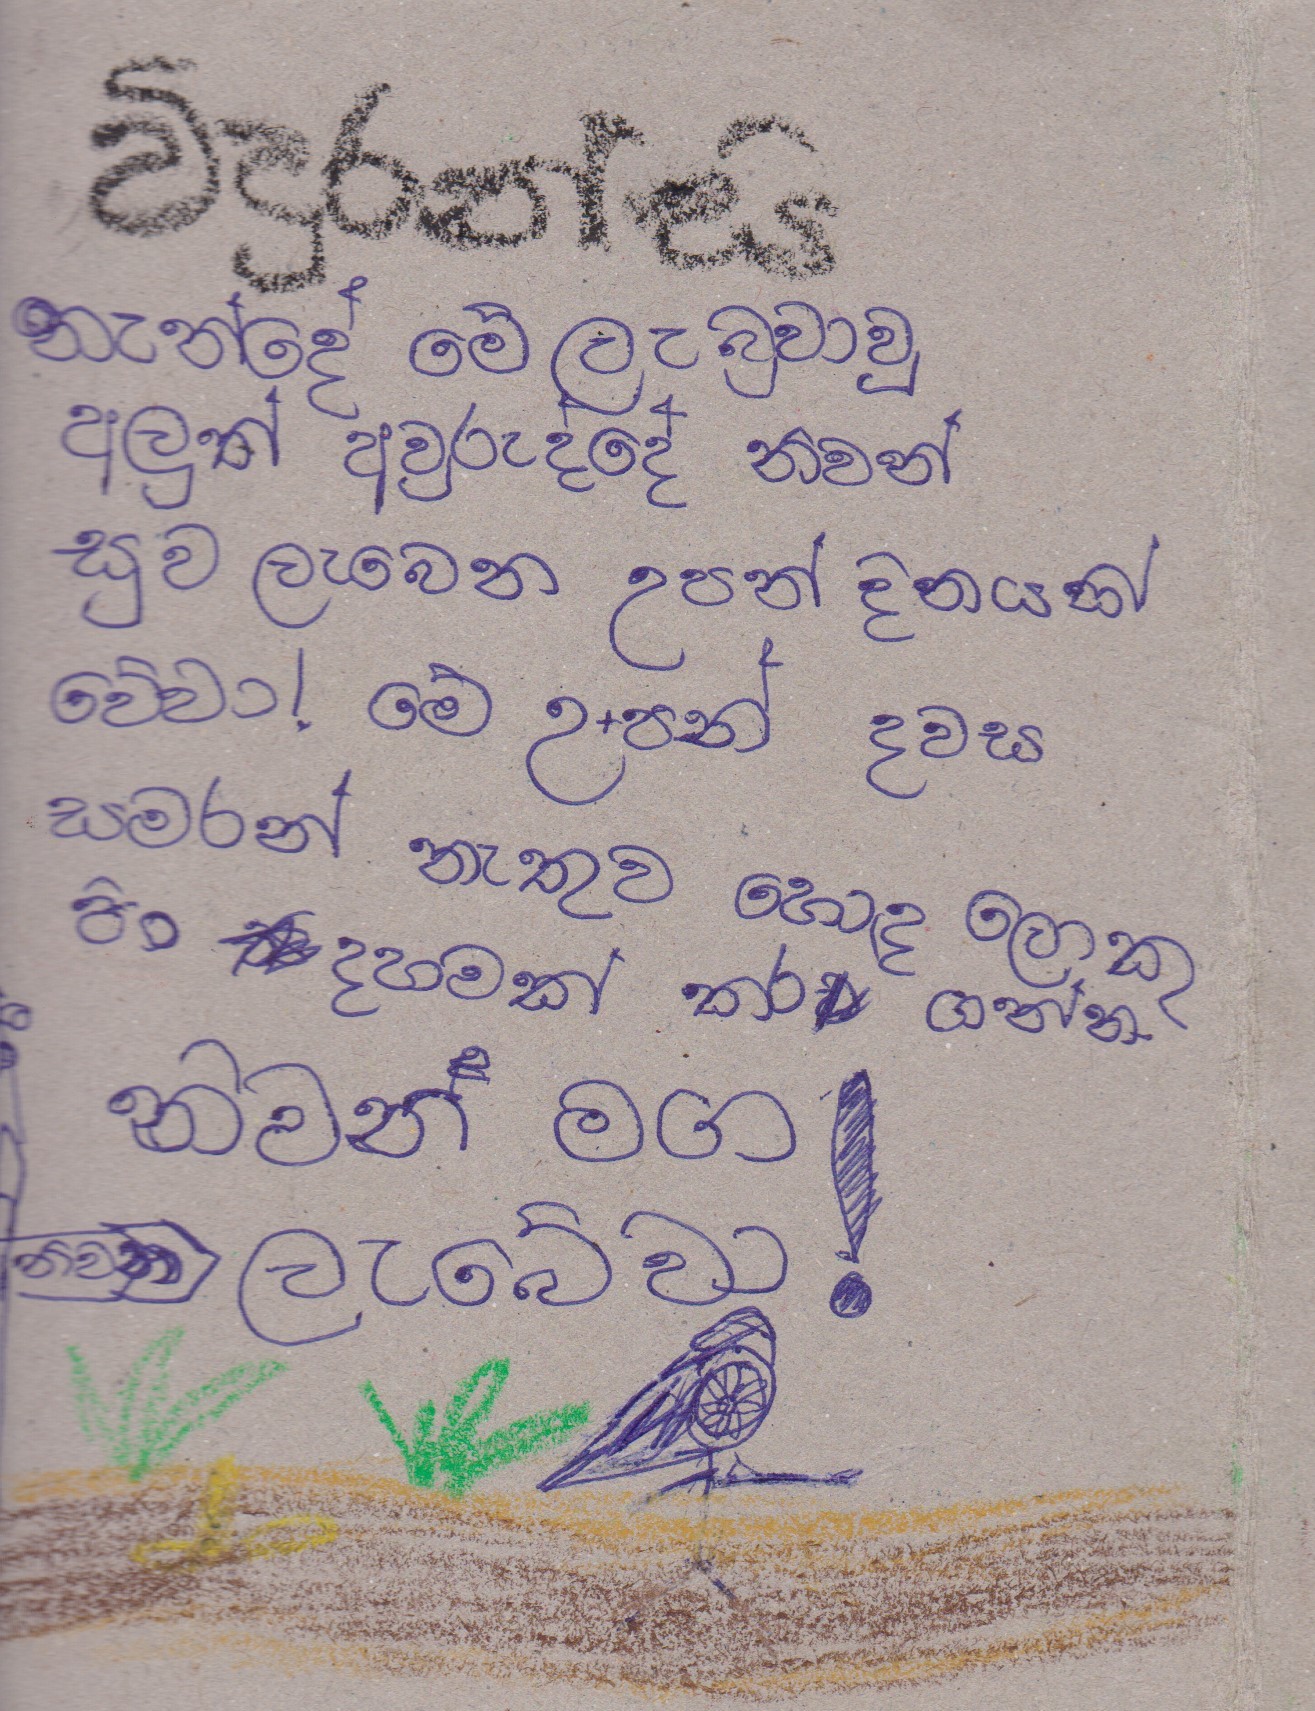 නැන්දේ මේ ලැබුවාවූ
අලුත් අවුරුද්දේ නිවන්
සුව ලැබෙන උපන් දිනයක්
වේවා! මේ උපන් දවස
සමරන් නැතුව හොඳ ලොකු
පිං දහමක් කර ගන්න
නිවන් මග
ලැබේවා!
නිවන